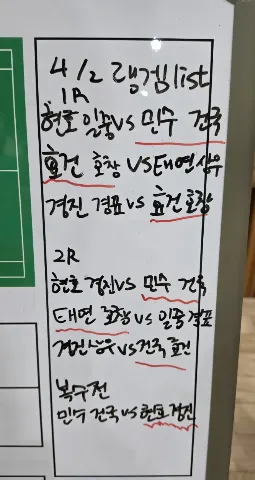 4/2 랭겜list
1R
현호 일중vs 민수 건국
효건 호창 VS 태연상우
경진 경표 vs 효건 호창
2R
현호 경진vs 민수 건국
태연 호창 vs 일중 경표
경진상우 vs 건국 효건
복수전
민수 건국 vs 현호 경진